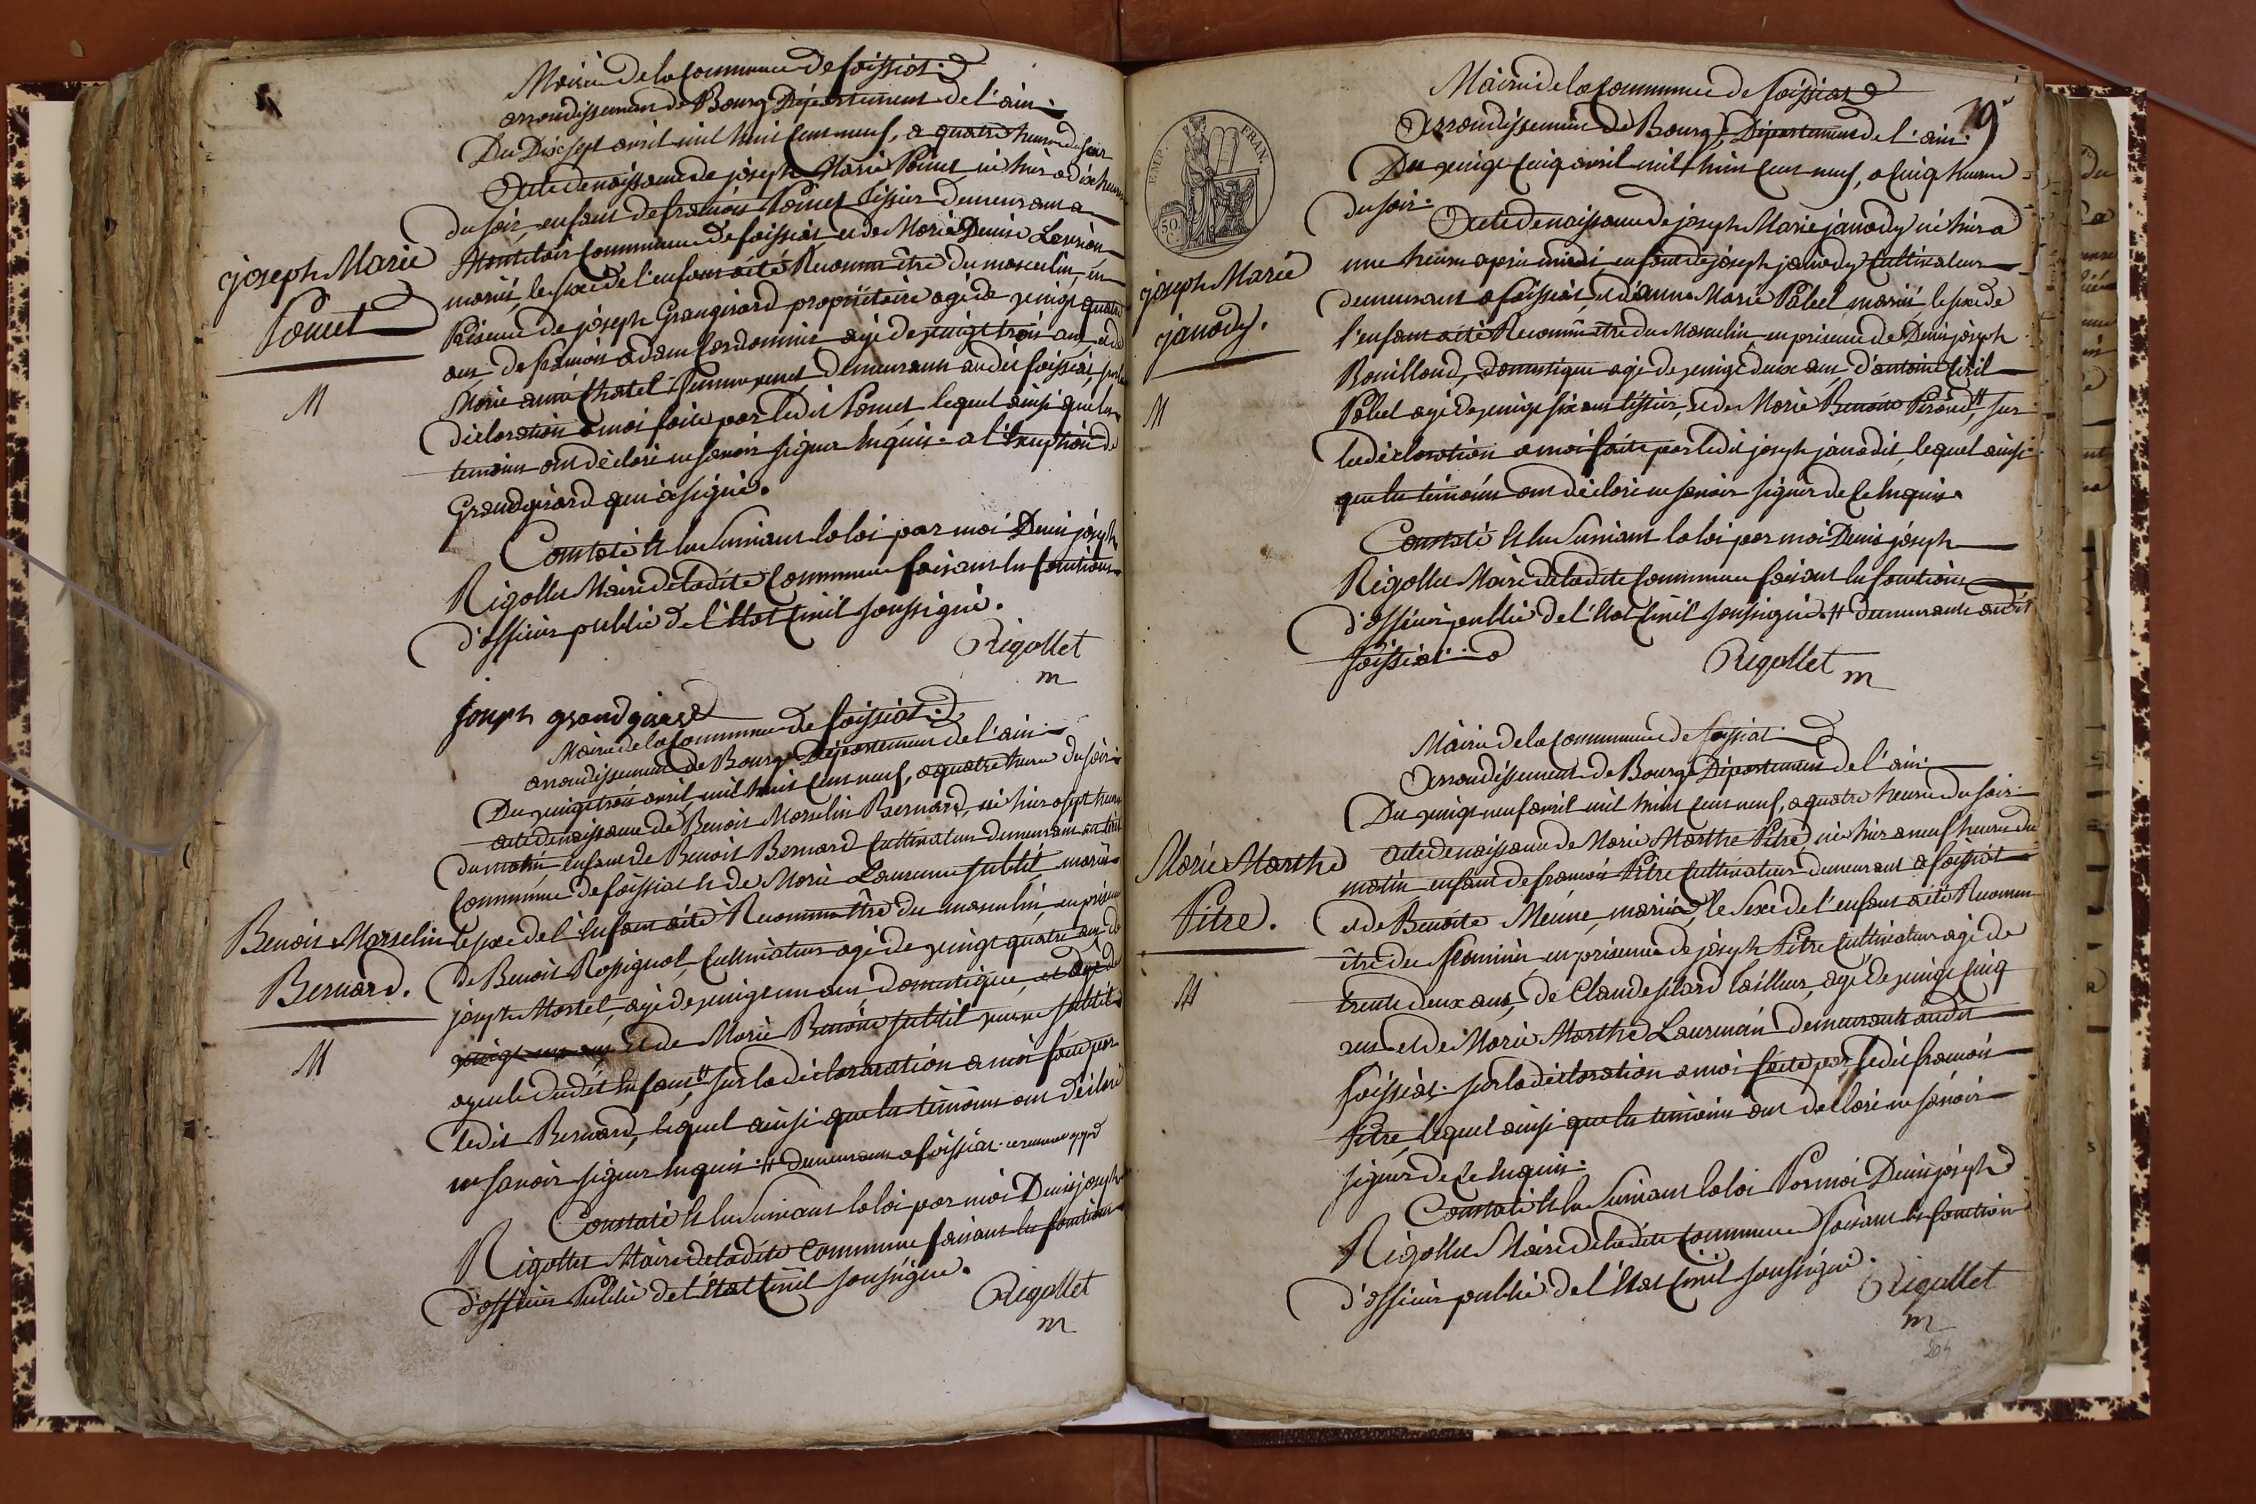 Mairie de la Commune de foissiat.
arrondissement de Bourg Département de l'ain.
Du Dix sept avril mil huit Cent neuf, a quatre heures du soir
Acte de naissance de joseph Marie Pomet né hier a dix heures
du soir, enfant de francois Pomet tissier demeurant a
Commune de foissiat et de Marie Denise
mariés, le sexe de l'enfant a été Reconnu être du masculin, en
Présence de joseph Grangirard propriétaire agé de vingt quatre
ans, de francois adam Cordonnier agé de vingt trois ans, et de
Marie anne Chatel femme demeurants audit foissiat, sur la
déclaration a moi faite par ledit Pomet, lequel ainsi que les
temoins ont déclaré ne savoir signer Enquis. a l'Exception de
Grandgirard qui a signé.
Constaté Et lu Suivant la loi par moi Denis joseph
Rigollet Maire de ladite Commune faisant les fonctions
d'officier public de l'Etat Civil soussigné.
Rigollet
m
joseph grandgirard
joseph Marie
Pomet
M
Mairie de la Commune de foissiat.
arrondissement de Bourg Département de l'ain.
Du vingt trois avril mil huit Cent neuf, a quatre heures du soir.
acte de naissance de Benoit Marselin Bernard, né hier a sept heures
du matin enfant de Benoit Bernard Cultivateur demeurant en cette
Commune de foissiat Et de Marie Laurence subtil, mariés.
le sexe de l'Enfant a été Reconnu être du masculin, en présence
de Benoit Rossignol, Cultivateur agé de vingt quatre ans, de
joseph Martel, agé de vingt un ans Domestique, et agé de
vingt un ans Et de Marie Benoite subtil veuve subtil
ayeule dudit Enfant,# sur la déclaration a moi faite par
ledit Bernard, lequel ainsi que les témoins ont déclaré
ne savoir signer Enquis. # demeurants a foissiat.
Constaté Et lu Suivant la loi par moi Denis joseph
Rigollet Maire de ladite Commune faisant les fonctions
d'officier Public de l'Etat Civil soussigné.
Rigollet
m
Benoit Marselin
Bernard.
M
79
EMP. FRAN.
50 C.
Mairie de la Commune de foissiat
Arrondissement de Bourg, Département de l'ain.
Du vingt Cinq avril mil huit Cent neuf, a Cinq heures
du soir.
Acte de naissance de joseph Marie janody né hier a
une heure après midi, enfant de joseph janody Cultivateur
demeurant a foissiat et d'anne Marie Palud mariés, le sexe de
l'enfant a été Reconnu être du Masculin, en présence de Denis joseph
Bouilloud, domestique agé de vingt deux ans, d'antoine
agé de vingt six ans tissier, et de Marie Benoite #, sur
la déclaration a moi faite par ledit joseph janodit, lequel ainsi
que les témoins ont déclaré ne savoir signer de Ce Enquis.
Constaté Et lu Suivant la loi par moi Denis joseph
Rigollet Maire de ladite Commune faisant les fonctions
d'officier public de l'Etat Civil soussigné. # demeurants audit
foissiat.
Rigollet
m
joseph Marie
janody.
M
Mairie de la Commune de foissiat.
Arrondissement de Bourg Département de l'ain.
Du vingt neuf avril mil huit Cent neuf, a quatre heures du soir.
acte de naissance de Marie Marthe Pitre, née hier a neuf heures du
matin enfant de francois Pitre Cultivateur demeurant a foissiat
et de Benoite mariés, le sexe de l'enfant a été Reconnu
être du féminin en présence de joseph Pitre Cultivateur agé de
trente deux ans, de Claude tailleur, agé de vingt Cinq
ans et de Marie Marthe demeurants audit
foissiat. sur la déclaration a moi faite par ledit francois
Pitre, lequel ainsi que les témoins ont déclaré ne savoir
signer de Ce Enquis.
Constaté Et lu Suivant la loi Par moi Denis joseph
Rigollet Maire de ladite Commune faisant les fonctions
d'officier public de l'Etat Civil soussigné.
Rigollet
m
Marie Marthe
Pitre.
M